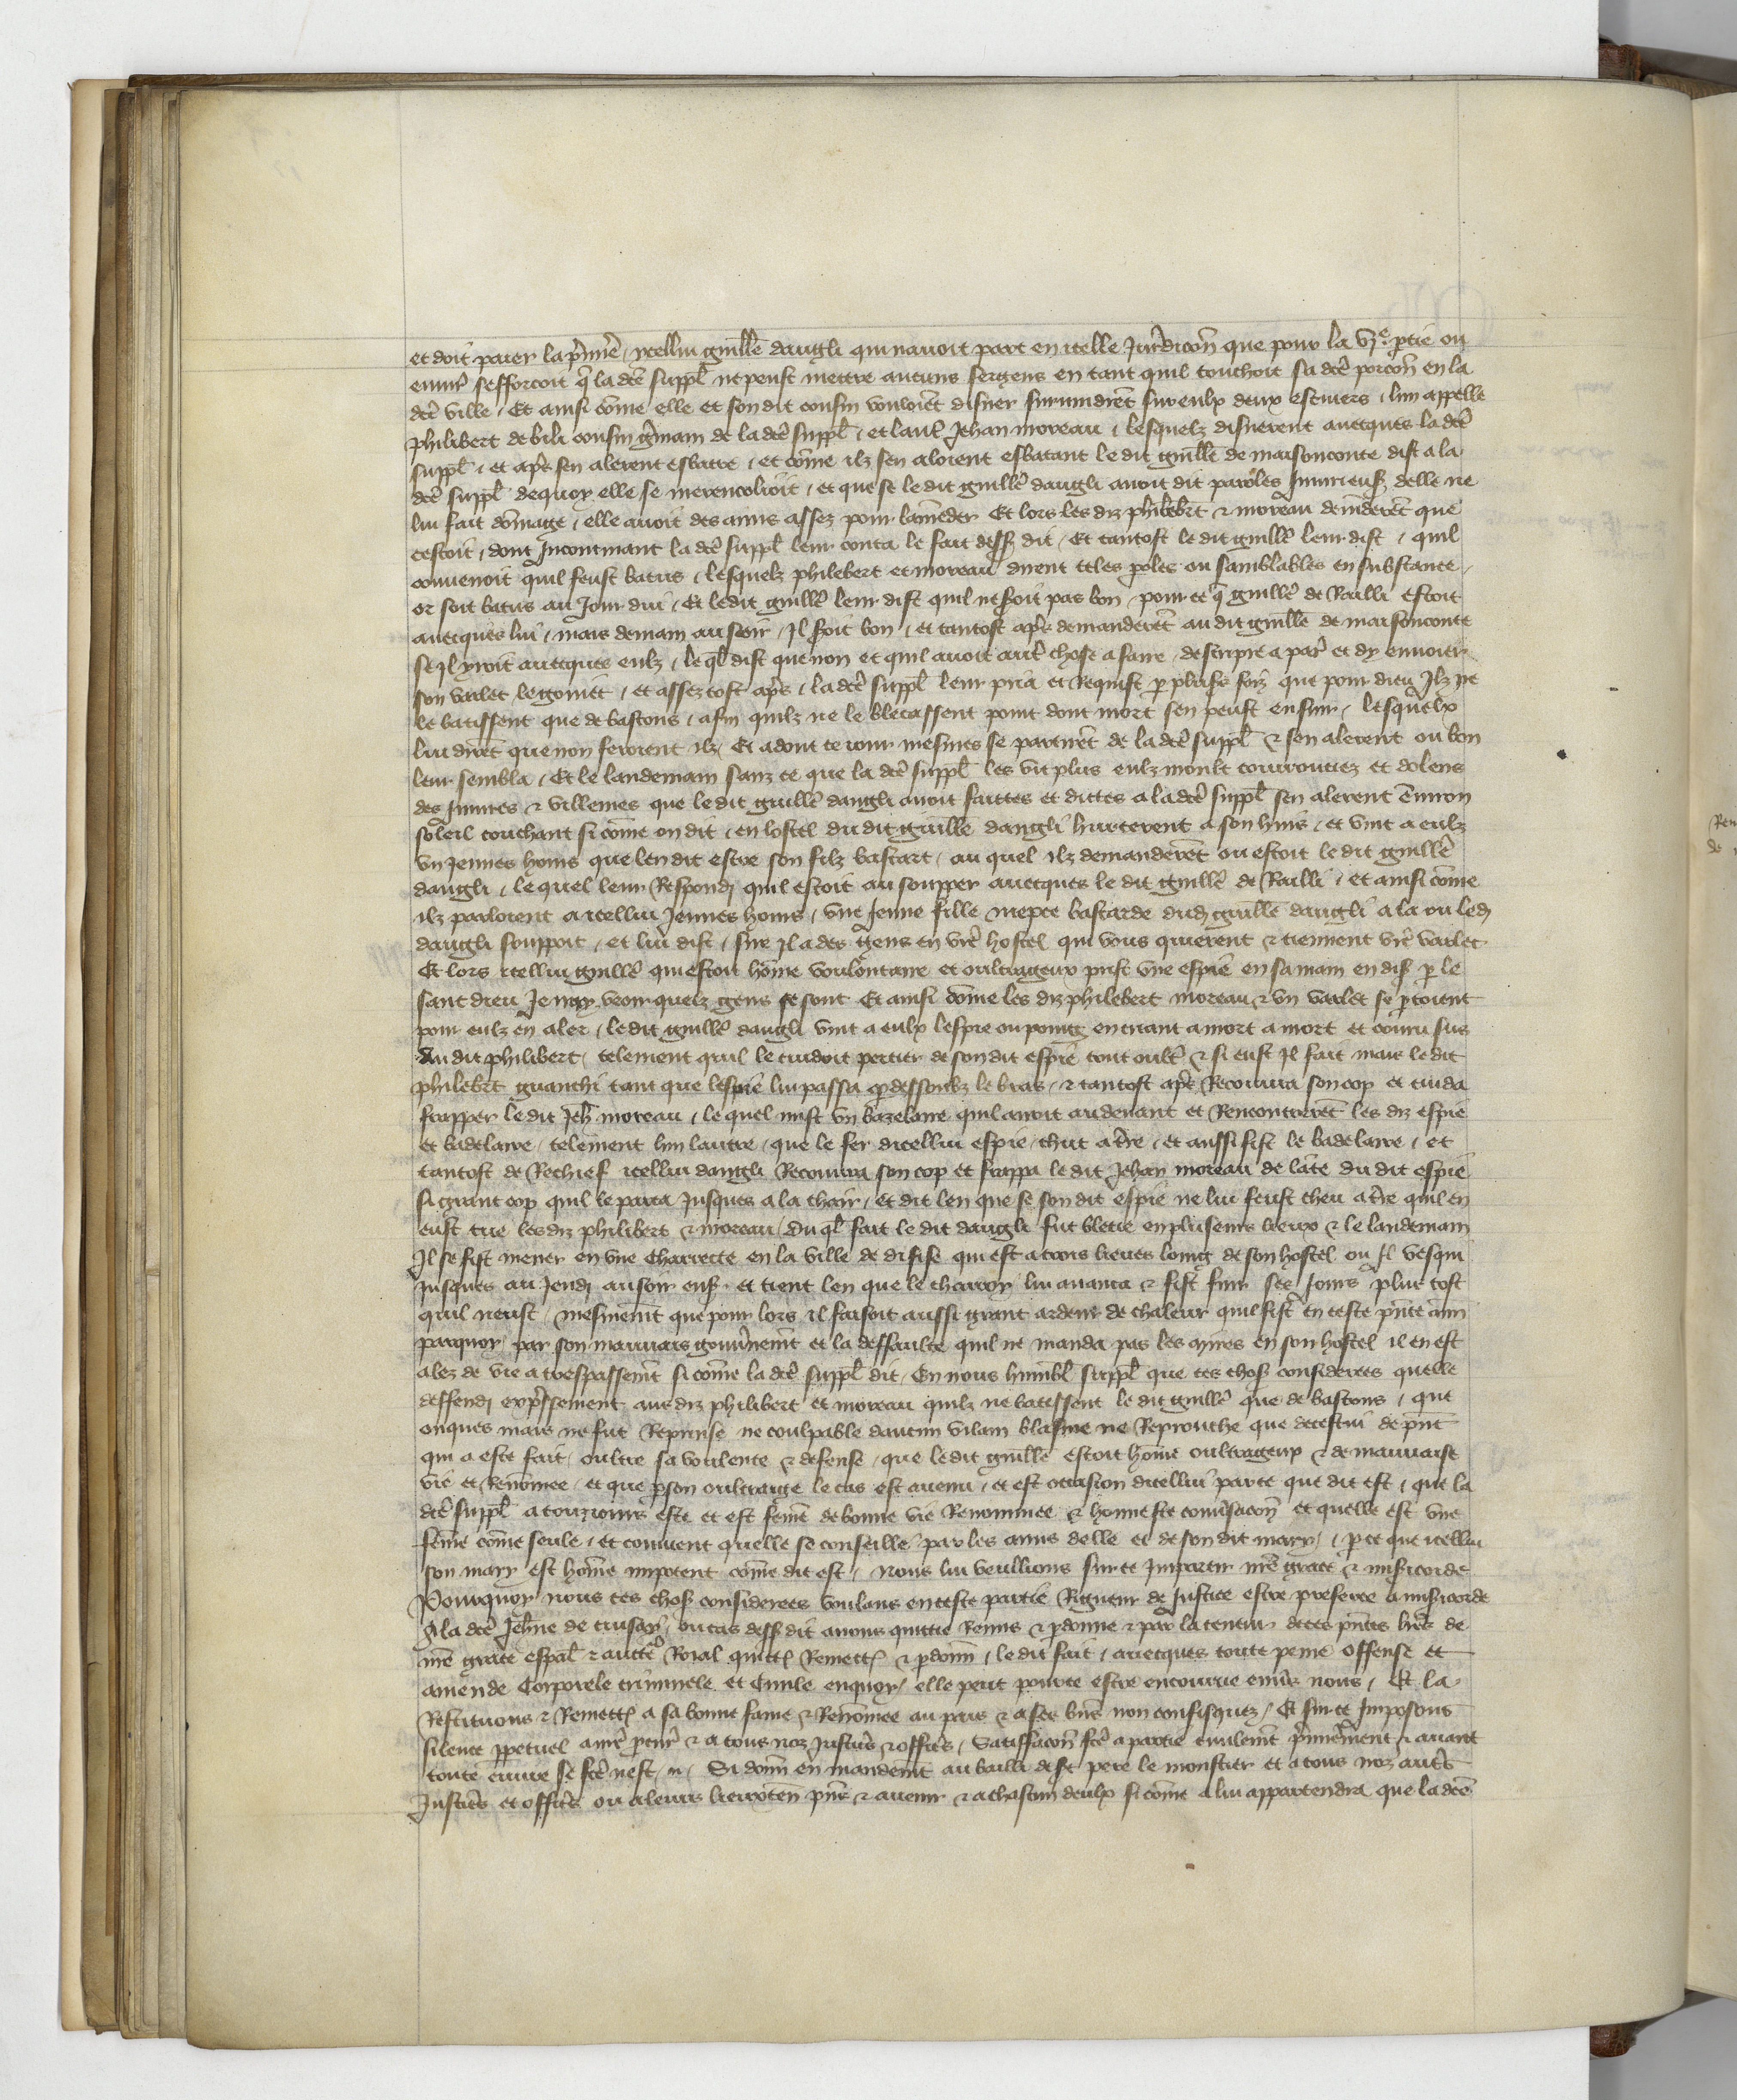 et doit paier la pͥmiere / ycellui guillē daugli qui nauoit part en icelle Juridicōn que pour la vjͤ ptie ou
enuirō sefforcoit q̄ la dcē suppl̄ ne peust mettre aucuns sergens en tant quil touchoit sa dcē porcōn en la
dcē ville / Et ainsi cōme elle et son dit cousin vouloiēt disner suruindrēt sur eulx deux escuiers / lun appelle
philibert de bili cousin gʼmain de la dcē suppl̄ / et lautʼ Jehan moreau / lesquelz disnerent auecques la dcē
suppl̄ / et apʼs sen alerent esbatre / et cōme ilz sen aloient esbatant le dit guillē de maisonconte dist a la
dcē suppl̄ de quoy elle se merencolioit / et que se le dit guillē daugli auoit dit paroles Jniurieus̄ delle ne
lui fait dōmage / elle auoit des amis assez pour lamēder Et lors les diz philebert ⁊ moreau demāderēt que
cestoit / dont Jncontinant la dcē suppl̄ leur conta le fait dess̄ dit / Et tantost le dit guillē leur dist / quil
conuenoit quil feust batus / lesquelz philebert et moreau dirent teles poles ou samblables en substance /
or soit batus au Jour dui / Et ledit guillē leur dist quil ne s̄oit pas bon / pour ce q̄ guillē de Railli estoit
auecques lui / mais demain au soir / Il s̄oit bon / et tantost apʼs demanderēt au dit guillē de maisonconte
se Jl yroit auecques eulz / le ql̄ dist que non et quil auoit autʼ chose a faire / descripre a parʼ et dy enuoier
son varlet / et assez tost apʼs / la dcē suppl̄ leur pria et Requist p plusrs foiz que pour dieu Ilz ne
le batissent que de bastons / afin quilz ne le blecassent point dont mort sen peust ensuir / lesquelx
lui dirēt que non feroient ilz / Et adont ce iour mesmes se partirēt de la dcē suppl̄ ⁊ sen alerent ou bon
leur sembla / Et le landemain sanz ce que la dcē suppl̄ les vit plus eulz moult courrouciez et dolens
des Jniures ⁊ villenies que le dit guillē daugli auoit faittes et dittes a la dcē suppl̄ sen alerent ēuiron
soleil couchant si cōme on dit / en lostel du dit guillē daugli hurterent a son huis / et vint a eulz
vn Jeunes homs que len dit estre son filz bastart / au quel ilz demanderēt ou estoit le dit guillē
daugli / le quel leur Respondj quil estoit au soupper auecques le dit guillē de Railli / et ainsi cōme
ilz parloient a icellui Jeunes homs / vne Jeune fille niepce bastarde dudj guillē daugli a la ou ledj
daugli souppoit / et lui dist / sire il a des gens en vrē hostel qui vous quierent ⁊ tiennent vrē varlet
Et lors icellui guillē qui estoit hōme voulontaire et oultrageux prist vne espiee en sa main en dis̄ p le
sanc dieu Je iray veoir quelz gens se sont Et ainsi cōme les diz philebert moreau ⁊ vn varlet se ptoient
pour eulz en aler / le dit guillē daugli vint a eulx lespie ou poing en criant a mort a mort et couru sus
Au dit philibert / telement quil le cuidoit percier de son dit espie tout oultʼ ⁊ si eust Jl fait mais le dit
philebert guanchi tant que lespie lui passa p dessoubz le bras / ⁊ tantost apʼs Recouura son cop et cuida
frapper le dit Jeh̄ moreau / le quel mist vn bazelaire quil auoit au deuant et Rencontrerēt les diz espie
et badelaire / telement lun lautre / que le fer dicellui espie / chut a tʼre / et aussi fist le badelaire / et
tantost de Rechief icellui daugli Recouura son cop et frappa le dit Jehan moreau de lāte du dit espie
si grant cop quil le parca Jusques a la chair / et dit len que se son dit espie ne lui feust cheu a tʼre quil en
eust tue les diz philibert ⁊ moreau / Du ql̄ fait le dit daugli fut blecie en pluseurs lieux ⁊ le landemain
Il se fist mener en vne Charrecte en la ville de disise qui est a trois lieues loing de son hostel ou Jl vesqui
Jusques au Jeudj au soir ens̄ / et tient len que le charroy lui auanca ⁊ fist finir ses Jours plus tost
quil neust / mesmemēt que pour lors il faisoit aussi grant ardeur de chaleur quil fist en ceste pn̄te ann̄
parquoy / par son mauuais gouuʼnemēt et la deffaulte quil ne manda pas les mires en son hostel il en est
alez de vie a trespassemēt si cōme la dcē suppl̄ dit / En nous humbl̄ suppl̄ que ces chos̄ considerees quelle
deffendj expʼssement aus diz philibert et moreau quilz ne batissent le dit guillē que de bastons / que
onques mais ne fut Reprinse ne coulpable daucun vilain blasme ne Reprouche que de cestui de pn̄t
qui a este fait / oultre sa voulente ⁊ defense / que le dit guillē estoit hōme oultrageux ⁊ de mauuaise
vie et Renōmee / et que p son oultraige le cas est auenu / et est occasion dicellui parce que dit est / que la
dcē suppl̄ a tousiours este et est fēme de bonne vie Renommee ⁊ honneste conuʼsacōn et quelle est vne
fēme cōme seule / et conuient quelle se conseille par les amis delle et de son dit mary / p ce que icellui
son mary est hōme impotent cōme dit est / nous lui veuillions sur ce Jmpartir nrē grace ⁊ misericorde
Pourquoy nous ces chos̄ considerees voulans en ceste partie Rigueur de Justice estre preferee a misericorde
A la dcē Jehn̄e de crusay / ou cas dess̄ dit auons quittie Remis ⁊ pdonne ⁊ par la teneur de ces pn̄tes lr̄es de
nrē grace espal̄ ⁊ auctē Roial quittōs Remettōs ⁊ pdonn̄ / le dit fait / auecques toute peine offense et
amende Corporele criminele et Ciuile enquoy / elle peut pource estre encourue enuʼs nous / Et la
Restituons ⁊ Remettōs a sa bonne fame ⁊ Renōmee au pais ⁊ a ses biēs non confisquez / Et sur ce Jmposons
silence ppetuel a nrē pcur̄ ⁊ a tous noz Justicʼs ⁊ officʼs / Satiffacōn fcē a partie ciuilemēt pʼmierēment ⁊ auant
toute euure se fcē nest / Si donn̄ en mandemēt au bailli de st pere le monstier et a tous noz autʼs
Justicʼs et officʼs ou a leurs lieuxten̄ pn̄s ⁊ auenir ⁊ a chascun deulx si cōme a lui appartendra que la dcē